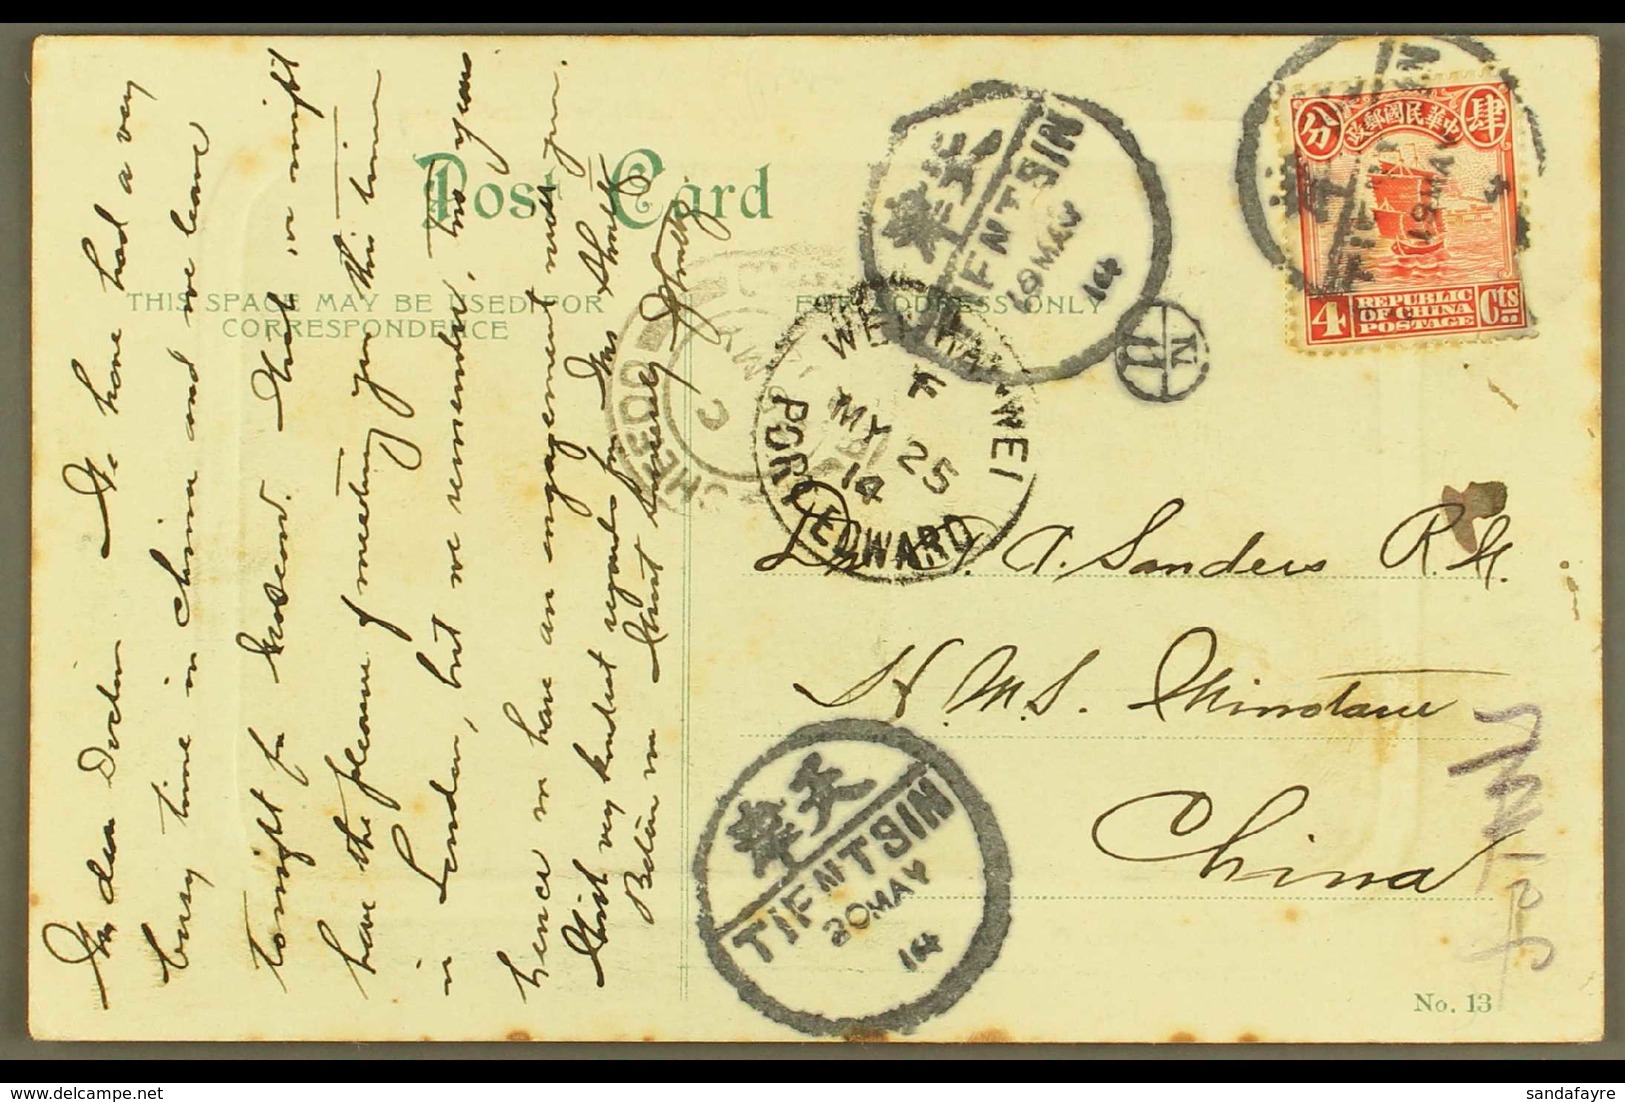 Post Card
THIS SPACE MAY BE USED FOR
CORRESPONDENCE
FOR ADDRESS ONLY
My dear Doctor. We have had a very
busy time in China and we leave
tonight for Moscow. That we might
have the pleasure of meeting you this time
in London, but we remember, two years
hence we have an engagement with you.
With very kindest regards from Mrs Short
Believe me Most sincerely
Dr. A. Sanders R.N.
H.M.S. Minotaur
China
中華民國郵政
肆
分
4 REPUBLIC OF CHINA POSTAGE Cts
天津
TIENTSIN
19 MAY
14
天津
TIENTSIN
19 MAY
14
天津
TIENTSIN
20 MAY
14
WEI-HAI-WEI
F
MY 25
14
PORT EDWARD
CHEFOO
C
MY
N
No. 13
sandafayre